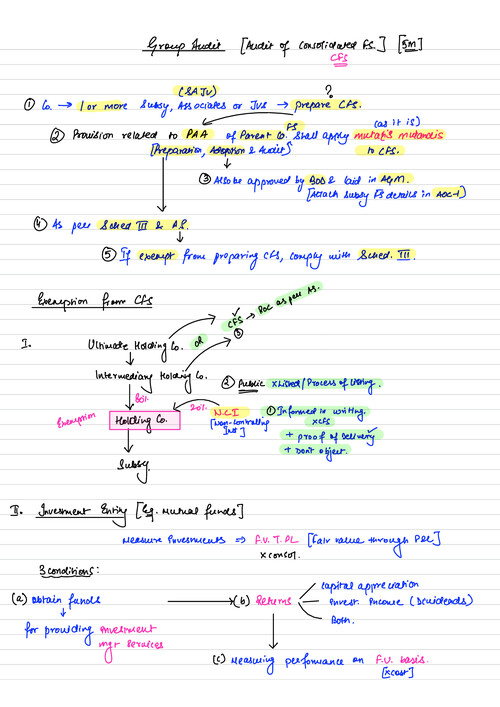 Group Audit [Audit of Consolidated FS.] [5M]
CFS
(SAJV) ?
① Co. → 1 or more Subsy, Associates or JVs → prepare CFS.
② Provision related to PAA of Parent Co. FS shall apply mutatis mutandis (as it is)
[Preparation, Adoption & Audit] to CFS.
③ Also be approved by BOD & laid in AGM.
[Attach Subsy FS details in AOC-1]
④ As per Sched III & AS.
⑤ If exempt from preparing CFS, comply with Sched. III.
Exemption from CFS
CFS → ROC as per AS.
③
I. Ultimate Holding Co. or
Intermediary Holding Co.
② Public x Listed/Process of listing.
80%
Exemption Holding Co. 20% N.C.I ① Informed in writing
[Non-Controlling Int] x CFS
+ proof of delivery
+ Don't object.
Subsy.
II. Investment Entity [Eg. Mutual funds]
Measure Investments ⇒ F.V.T.PL [Fair value through P&L]
x consol.
3 conditions:
(a) obtain funds → (b) Returns
Capital appreciation
Invest. Income (Dividends)
Both.
for providing investment
mgt services
(c) Measuring performance on F.V. basis.
[x cost]